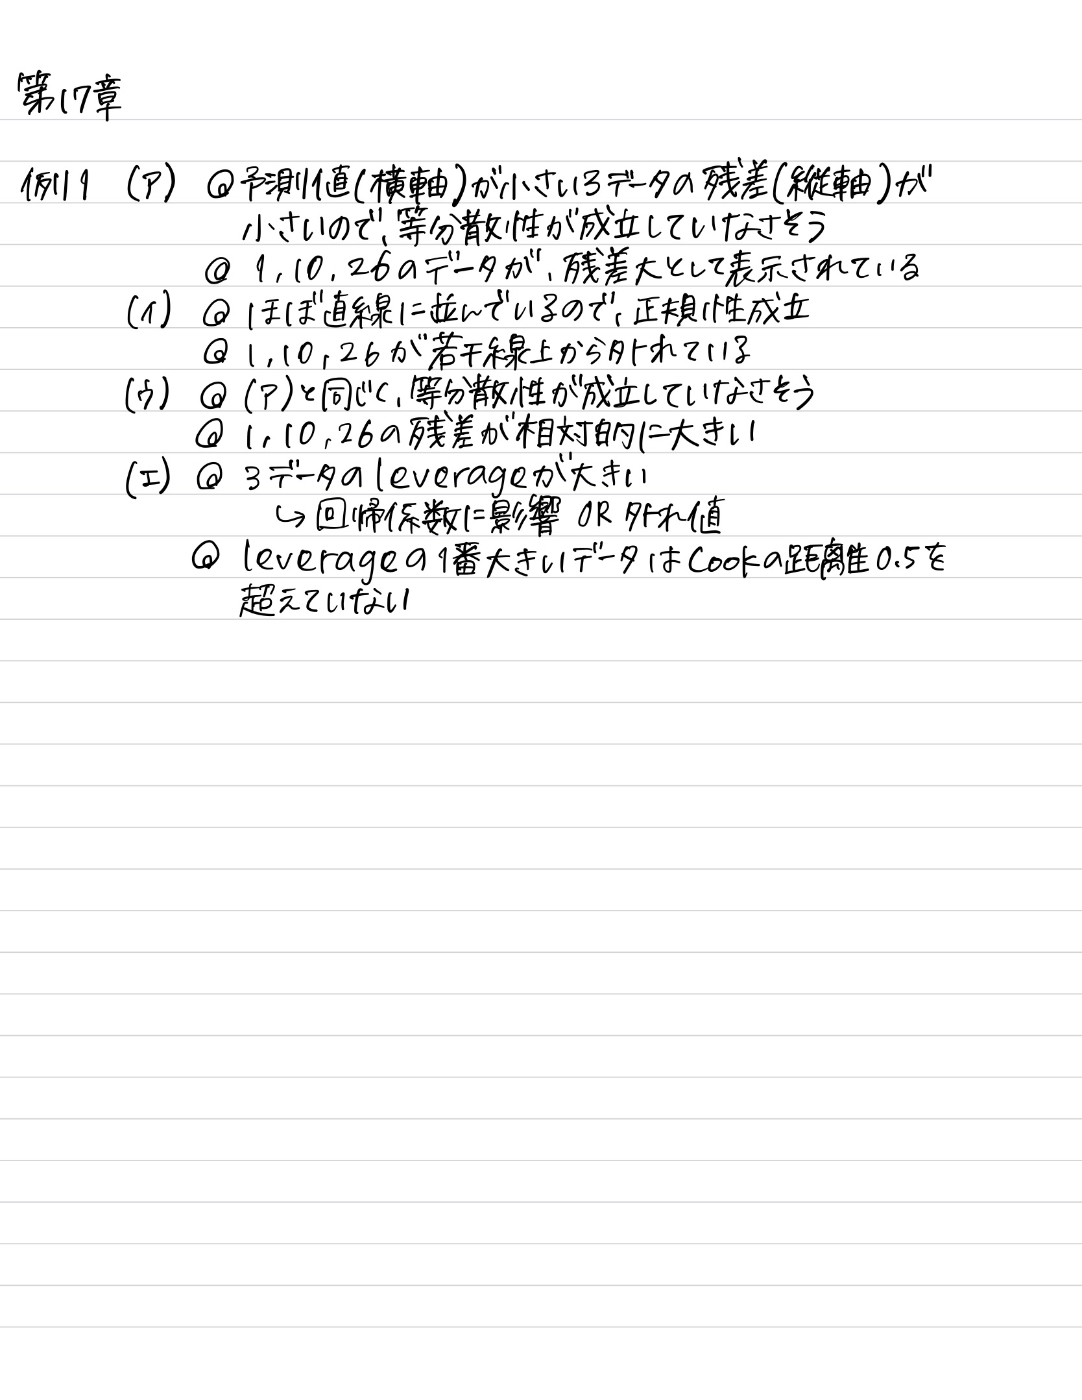 第17章
例1 1 (ア) @予測値(横軸)が小さい3データの残差(縦軸)が
小さいので、等分散性が成立していなさそう
@ 1,10,26のデータが、残差大として表示されている
(イ) @ ほぼ直線に並んでいるので、正規性成立
@ 1,10,26が若干線上から外れている
(ウ) @ (ア)と同じく、等分散性が成立していなさそう
@ 1,10,26の残差が相対的に大きい
(エ) @ 3データのleverageが大きい
↳ 回帰係数に影響 OR 外れ値
@ leverageの1番大きいデータはCookの距離0.5を
超えていない